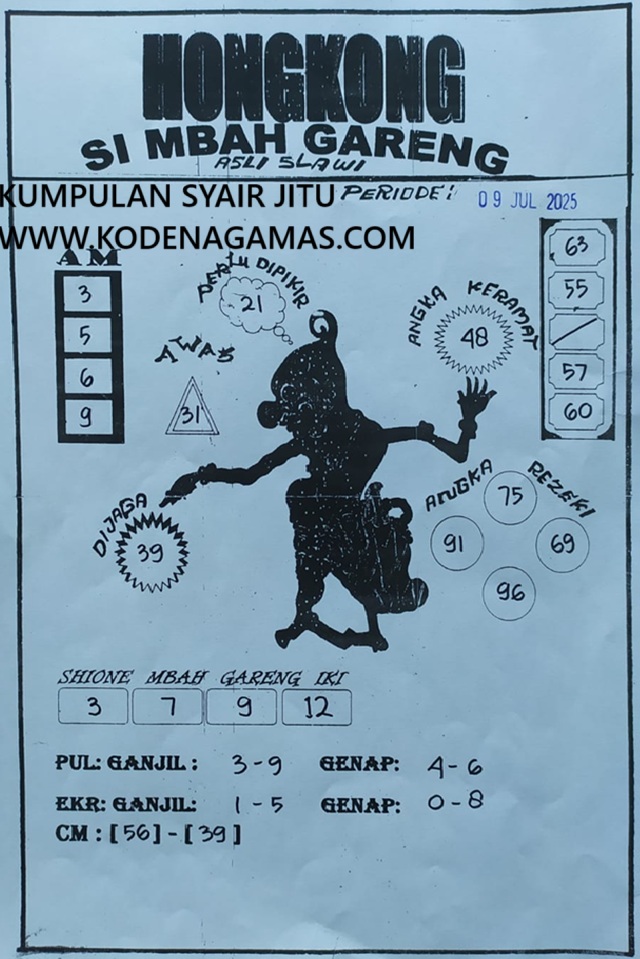 HONGKONG
SI MBAH GARENG
ASLI SLAWI
KUMPULAN SYAIR JITU
PERIODE: 09 JUL 2025
WWW.KODENAGAMAS.COM
AM
3
5
6
9
PERLU DIPIKIR
21
AWAS
31
ANGKA KERAMAT
48
63
55
57
60
DIJAGA
39
ANGKA REZEKI
75
91
69
96
SHIONE MBAH GARENG IKI
3 7 9 12
PUL: GANJIL : 3 - 9 GENAP: 4 - 6
EKR: GANJIL: 1 - 5 GENAP: 0 - 8
CM : [56] - [39]